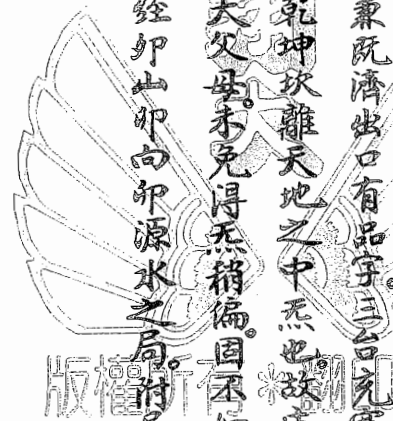 兼既濟出口有品字三台充
乾坤坎離天地之中炁也故
大父母。未免得炁稍偏。固不
經卯山卯向卯源水之局。附
版權所有＊翻印